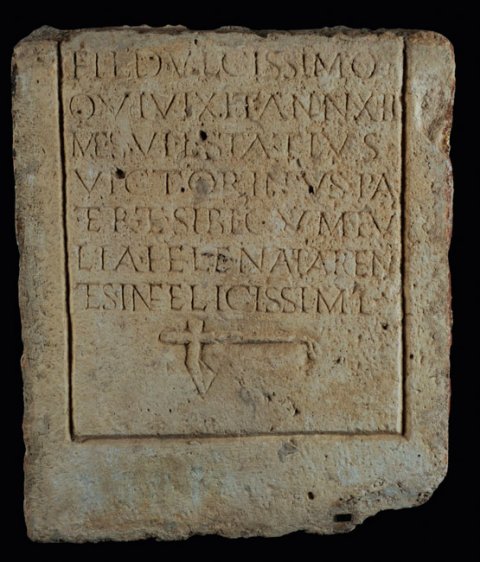 FIL DVLCISSIMO
QVI VIXIT ANN XIII
MES VI STATIVS
VICTORINVS PA
TER ET SIBI CVM IV
LIA HELENA PAREN
TES INFELICISSIMI